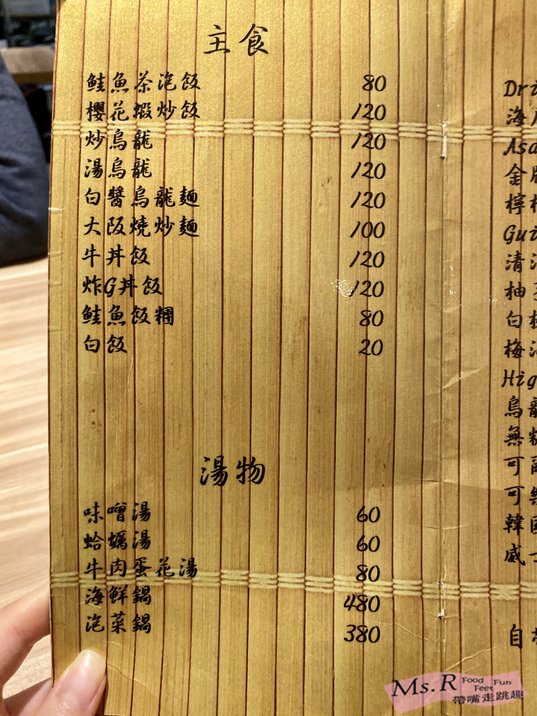 主食
鮭魚茶泡飯 80
櫻花蝦炒飯 120
炒烏龍 120
湯烏龍 120
白醬烏龍麵 120
大阪燒炒麵 100
牛丼飯 120
炸G丼飯 120
鮭魚飯糰 80
白飯 20
湯物
味噌湯 60
蛤蠣湯 60
牛肉蛋花湯 80
海鮮鍋 480
泡菜鍋 380
Dri
海
Asa
金
檸
Gui
清
柚
白
梅
Hig
烏龍
無糖
可
可
韓
威
自
Ms.R Food Feet Fun
帶嘴走跳趣